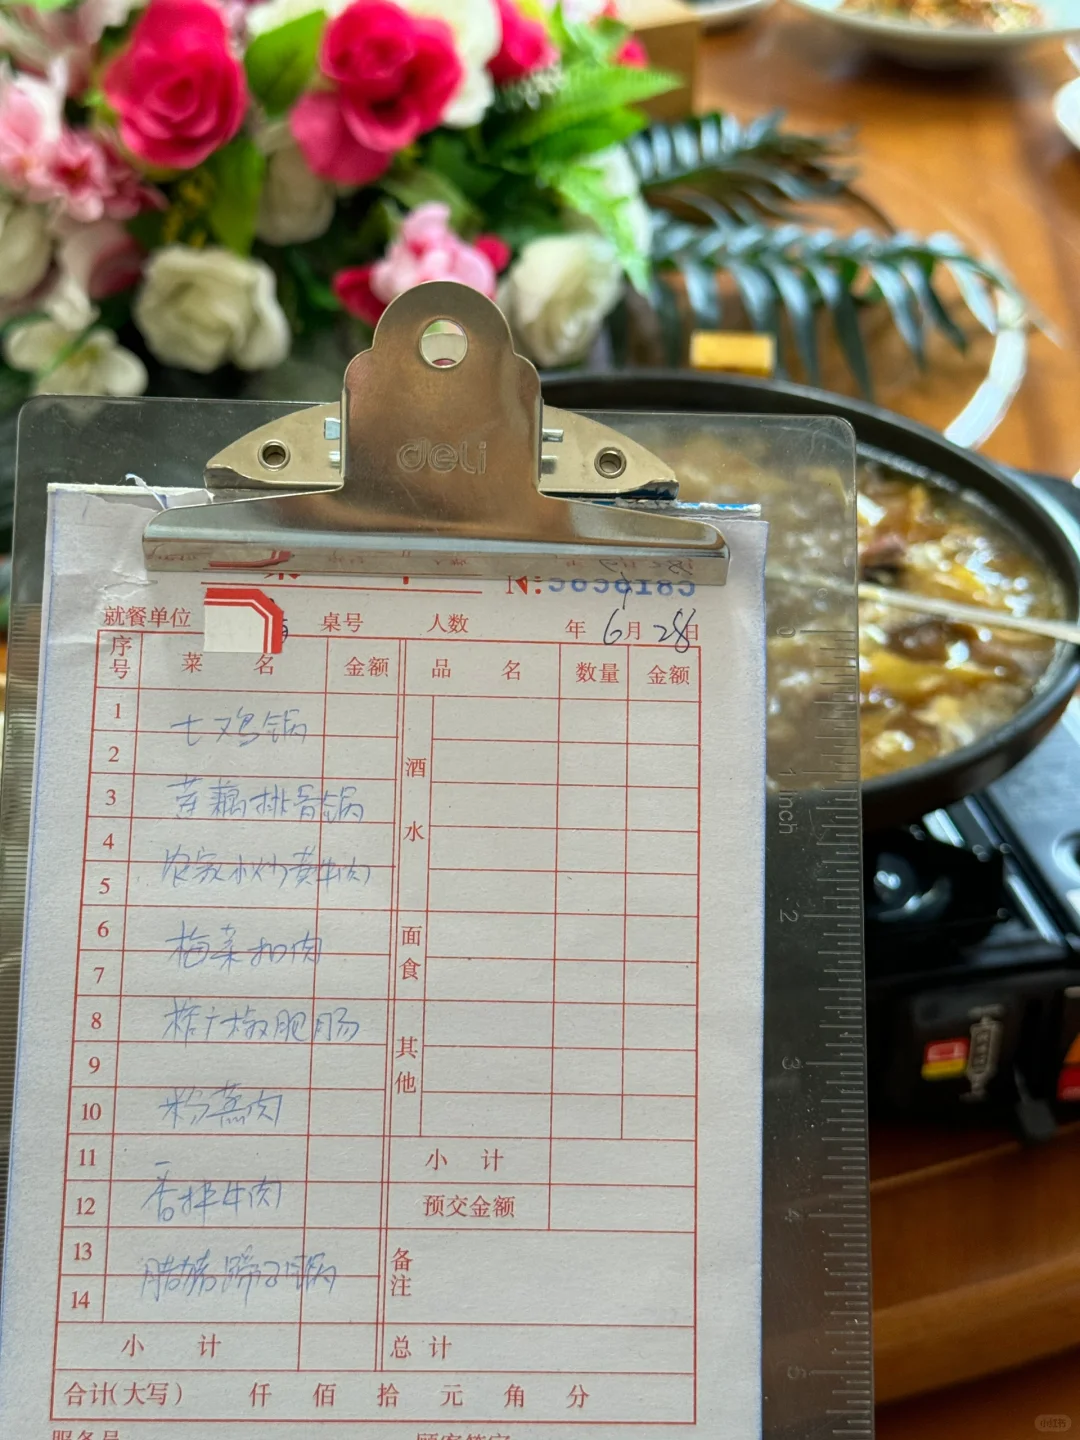 deli
就餐单位 桌号 人数 年 6月 28日
序号 菜 名 金额 品 名 数量 金额
1 土鸡锅
2
3 莲藕排骨锅
4
5 农家小炒黄牛肉
6 梅菜扣肉
7
8 榨广椒肥肠
9
10 粉蒸肉
11
12 香拌牛肉
13 腊猪蹄子锅
14
酒水
面食
其他
小 计
预交金额
备注
小 计 总 计
合计(大写) 仟 佰 拾 元 角 分
服务员
inch
1
2
3
4
5
小红书